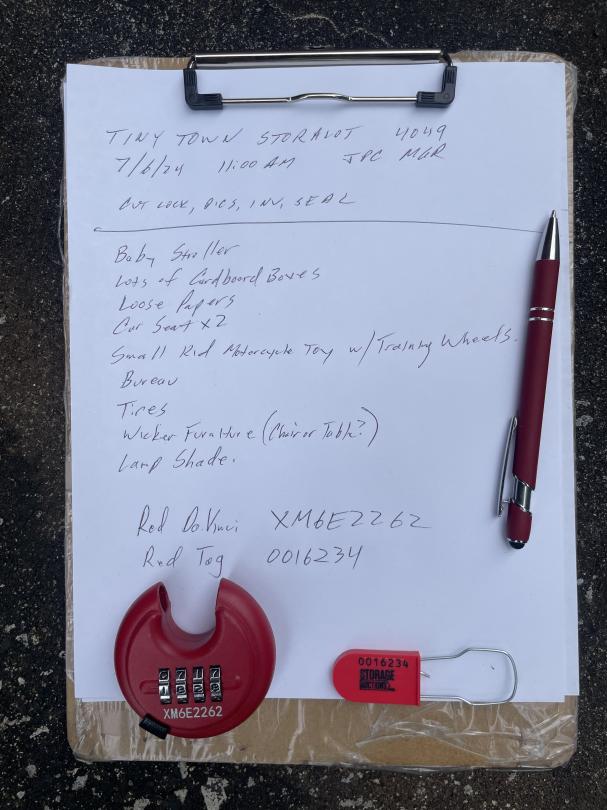 TINY TOWN STORALOT 4049
7/6/24 11:00 AM JPC MGR
CUT LOCK, PICS, INV, SEAL
Baby Stroller
Lots of Cardboard Boxes
Loose Papers
Car Seat x2
Small Kid Motorcycle Toy w/ Training Wheels.
Bureau
Tires
Wicker Furniture (Chair or Table?)
Lamp Shade.
Red DaVinci XM6E2262
Red Tag 0016234
XM6E2262
0016234
STORAGE
AUCTIONS